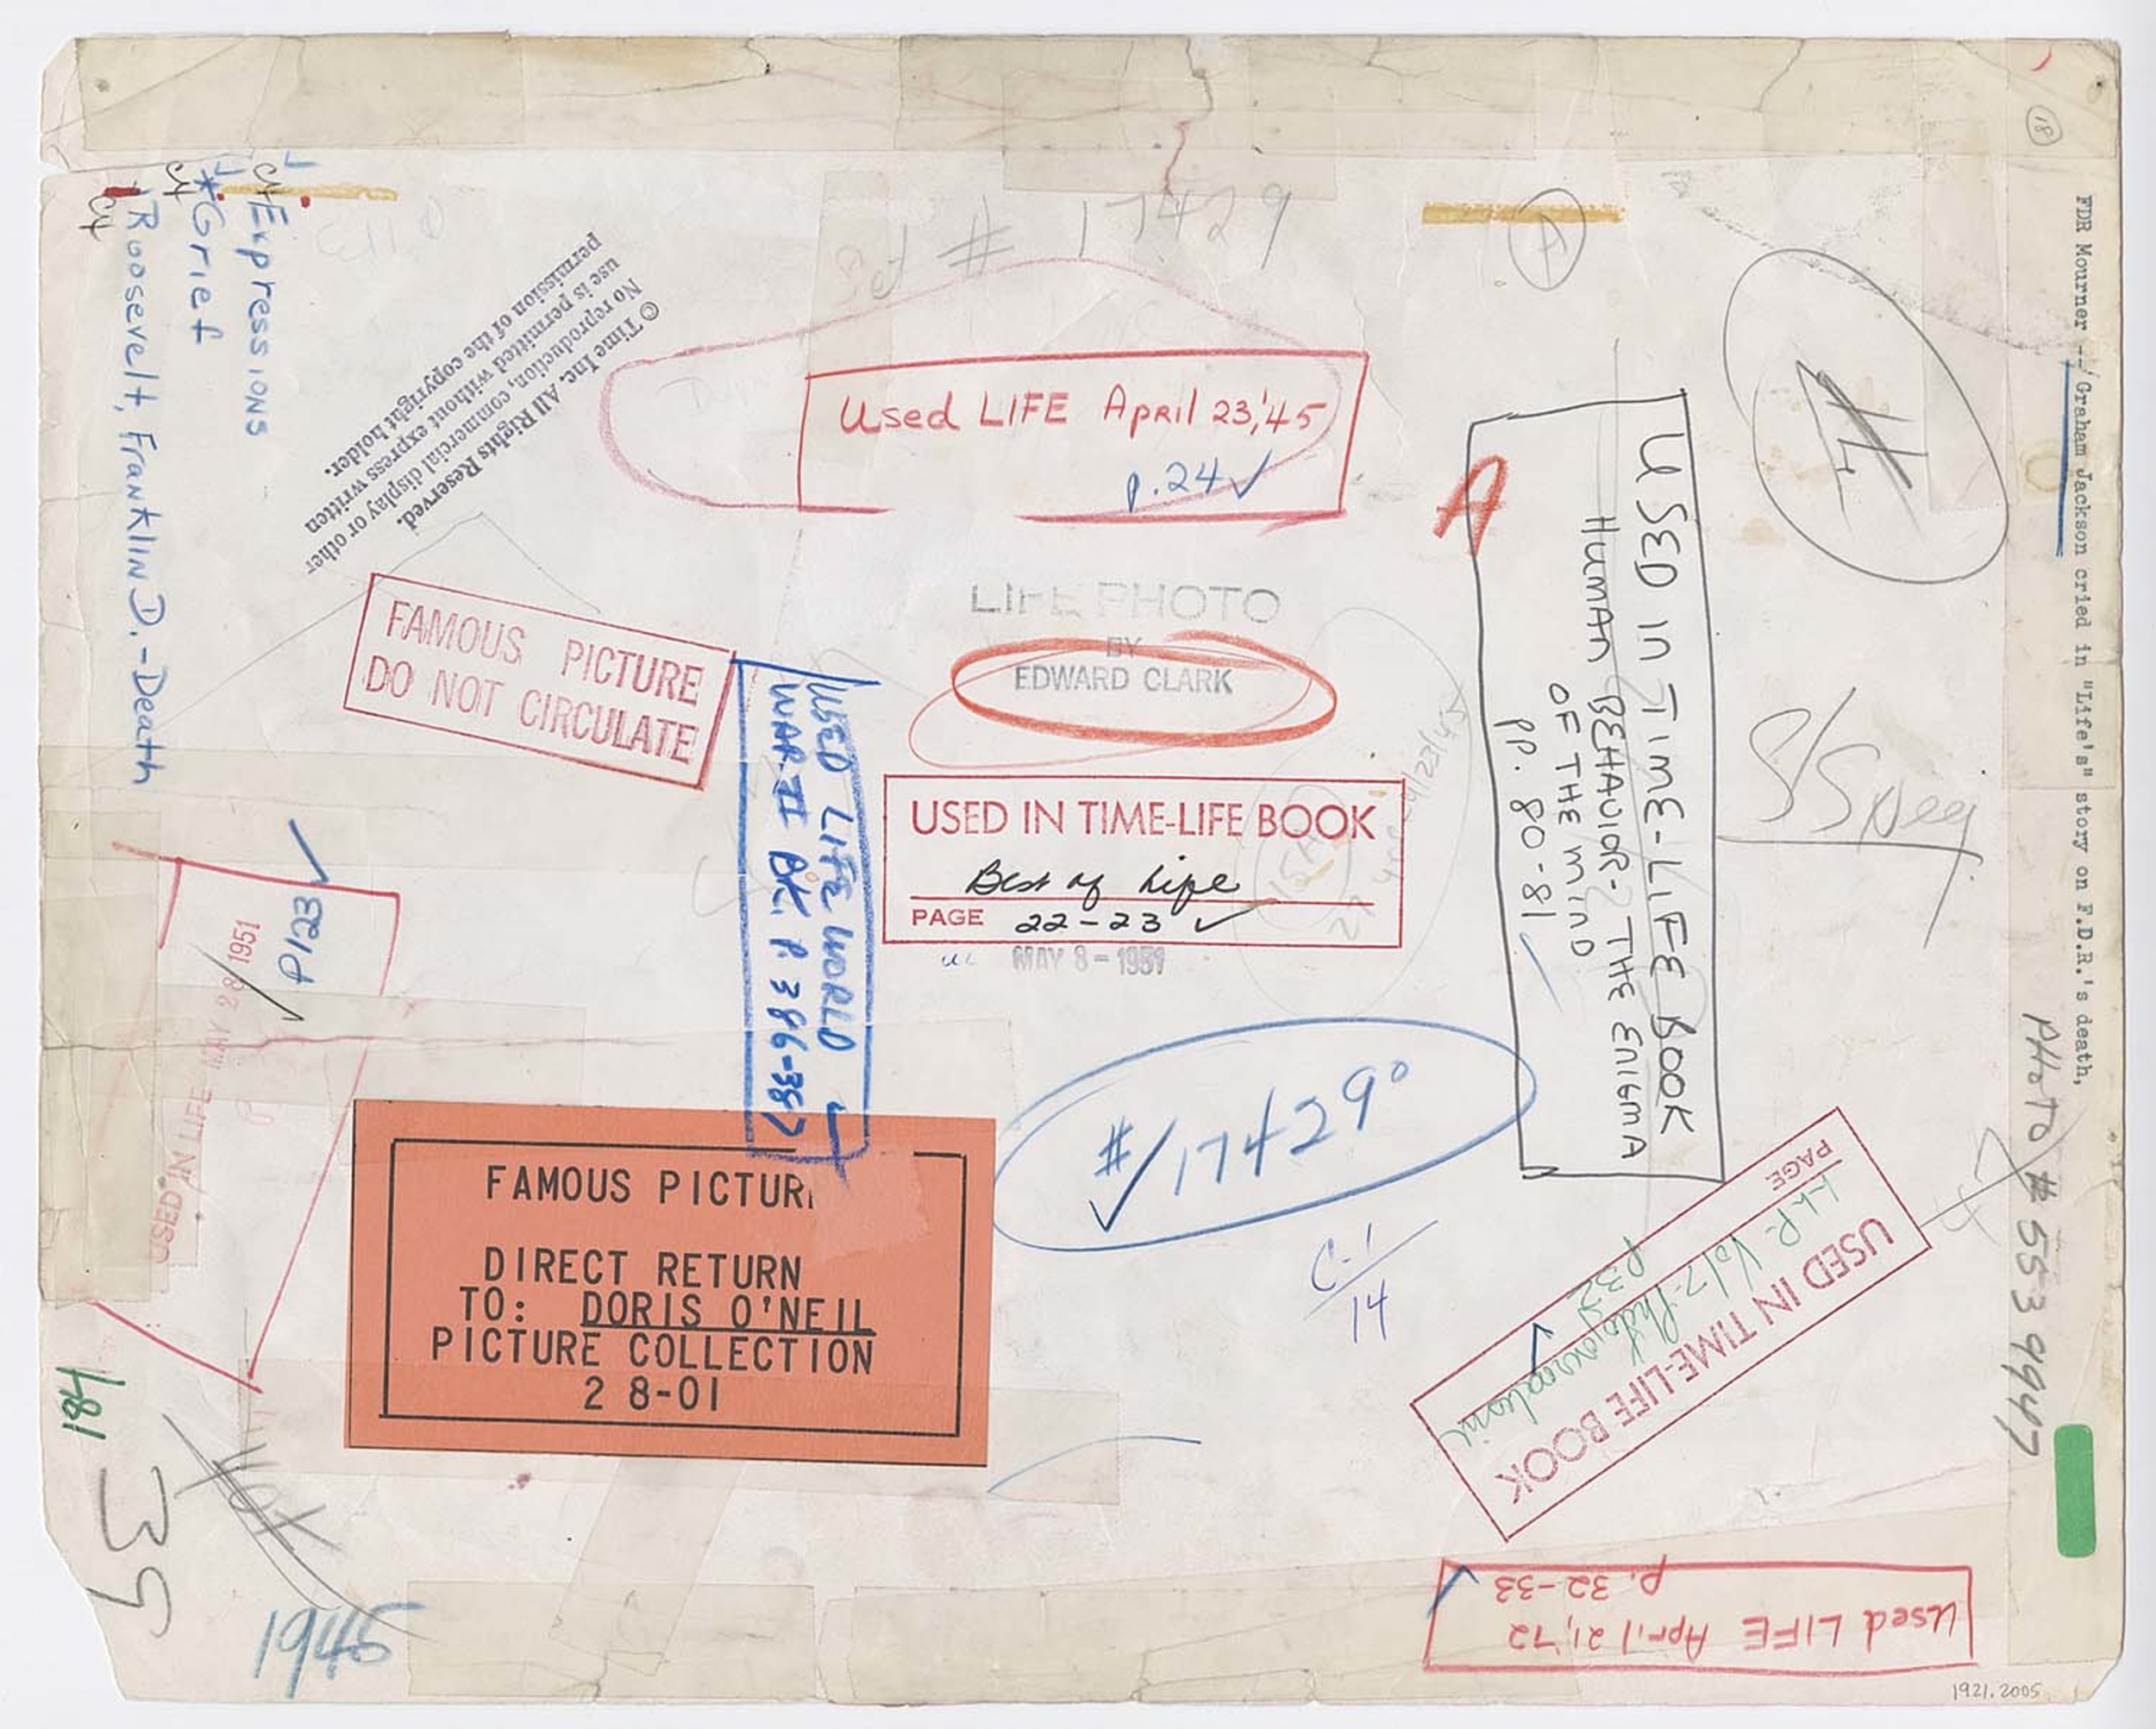 18
FDR Mourner -- Graham Jackson cried in "Life's" story on F.D.R.'s death,
PHOTO # 5539947
Expressions
*Grief
Roosevelt, Franklin D.-Death
© Time Inc. All Rights Reserved.
No reproduction, commercial display or other
use is permitted without express written
permission of the copyright holder.
# 17429
Used LIFE April 23,'45
p.24 ✓
A
USED IN TIME-LIFE BOOK
HUMAN BEHAVIOR- THE ENIGMA
OF THE MIND
PP. 80-81
LIFE PHOTO
BY
EDWARD CLARK
FAMOUS PICTURE
DO NOT CIRCULATE
USED LIFE WORLD
WAR II BK. P. 386-387
USED IN TIME-LIFE BOOK
Best of Life
PAGE 22-23 ✓
MAY 8-1951
S/S neg
P123
USED IN LIFE MAY 28 1951
#17429°
C-1
14
FAMOUS PICTUR
DIRECT RETURN
TO: DORIS O'NEIL
PICTURE COLLECTION
2 8-01
USED IN TIME-LIFE BOOK
LLP. Vol 7- Photojournalism
PAGE P32
184
39
1945
Used LIFE April 21,'72
p. 32-33
1921.2005